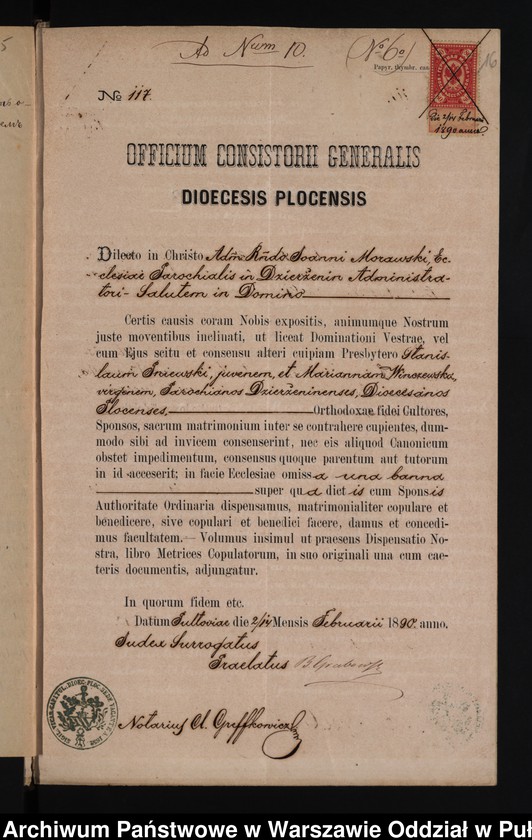 Ad Num 10.
(No 60)
Papyr. thymbr. cau.
16
No 117.
die 2/14 Februarii
1890 anno
OFFICIUM CONSISTORII GENERALIS
DIOECESIS PLOCENSIS
Dilecto in Christo Adm. Rndo Joanni Morawski, Ec-
clesiae Parochialis in Dzierżenin Administra-
tori - Salutem in Domino
Certis causis coram Nobis expositis, animumque Nostrum
juste moventibus inclinati, ut liceat Dominationi Vestrae, vel
cum Ejus scitu et consensu alteri cuipiam Presbytero Stanis-
laum Gniewski, juvenem, et Mariannam Winczewska,
virginem, Parochianos Dzierżeninenses, Dioecesanos
Plocenses. Orthodoxae fidei Cultores,
Sponsos, sacrum matrimonium inter se contrahere cupientes, dum-
modo sibi ad invicem consenserint, nec eis aliquod Canonicum
obstet impedimentum, consensus quoque parentum aut tutorum
in id accesserit; in facie Ecclesiae omissa una banno
super qua dict is cum Sponsis
Authoritate Ordinaria dispensamus, matrimonialiter copulare et
benedicere, sive copulari et benedici facere, damus et concedi-
mus facultatem. — Volumus insimul ut praesens Dispensatio No-
stra, libro Metrices Copulatorum, in suo originali una cum cae-
teris documentis, adjungatur.
In quorum fidem etc.
Datum Pultoviae die 2/14 Mensis Februarii 1890. anno.
Judex Surrogatus
Praelatus
Notarius A. Greffkowicz
Archiwum Państwowe w Warszawie Oddział w Puł